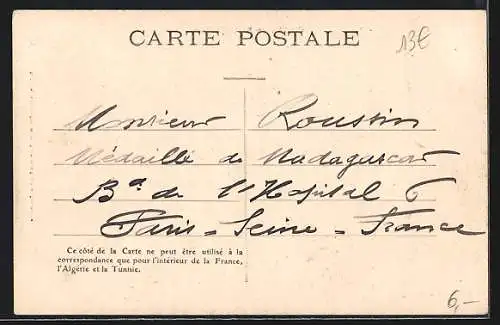 CARTE POSTALE
13€
Monsieur Roussin
Médaillé de Madagascar
Bd. de l'Hôpital 6
Paris - Seine - France
Ce côté de la Carte ne peut être utilisé à la
correspondance que pour l'intérieur de la France,
l'Algérie et la Tunisie.
6,-